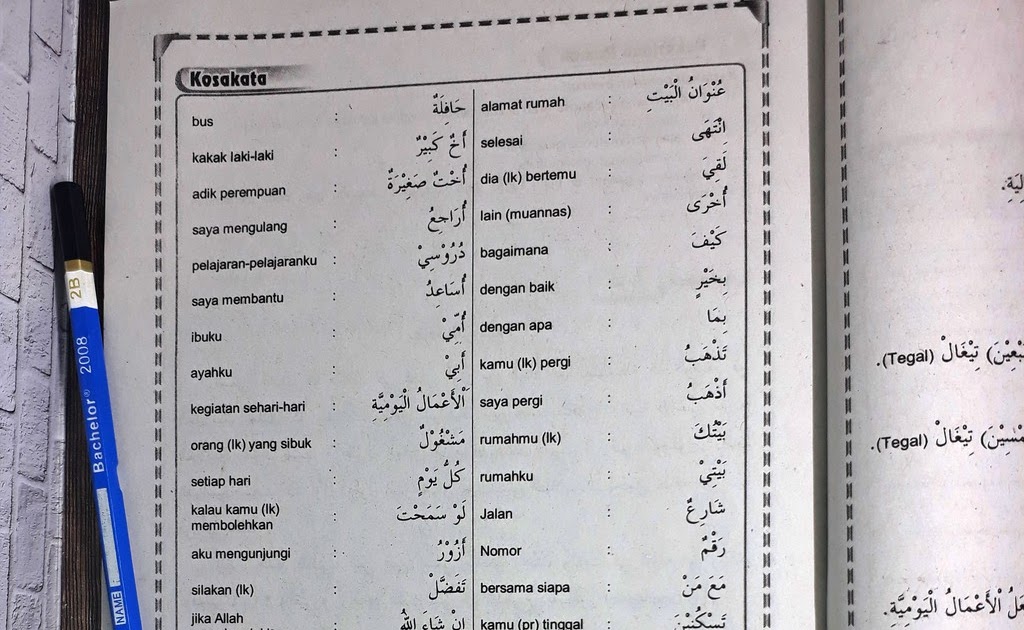 Kosakata
bus : حَافِلَةٌ
kakak laki-laki : أَخٌ كَبِيْرٌ
adik perempuan : أُخْتٌ صَغِيْرَةٌ
saya mengulang : أُرَاجِعُ
pelajaran-pelajaranku : دُرُوْسِيْ
saya membantu : أُسَاعِدُ
ibuku : أُمِّيْ
ayahku : أَبِيْ
kegiatan sehari-hari : اَلْأَعْمَالُ الْيَوْمِيَّةِ
orang (lk) yang sibuk : مَشْغُوْلٌ
setiap hari : كُلُّ يَوْمٍ
kalau kamu (lk)
membolehkan : لَوْ سَمَحْتَ
aku mengunjungi : أَزُوْرُ
silakan (lk) : تَفَضَّلْ
jika Allah : إِنْ شَاءَ اللهُ
alamat rumah : عُنْوَانُ الْبَيْتِ
selesai : انْتَهَى
dia (lk) bertemu : لَقِيَ
lain (muannas) : أُخْرَى
bagaimana : كَيْفَ
dengan baik : بِخَيْرٍ
dengan apa : بِمَا
kamu (lk) pergi : تَذْهَبُ
saya pergi : أَذْهَبُ
rumahmu (lk) : بَيْتُكَ
rumahku : بَيْتِيْ
Jalan : شَارِعٌ
Nomor : رَقْمٌ
bersama siapa : مَعَ مَنْ
kamu (pr) tinggal : تَسْكُنِيْنَ
تِيْغَالْ (Tegal).
تِيْغَالْ (Tegal).
الْأَعْمَالُ الْيَوْمِيَّةِ.
2B
Bachelor® 2008
NAME: